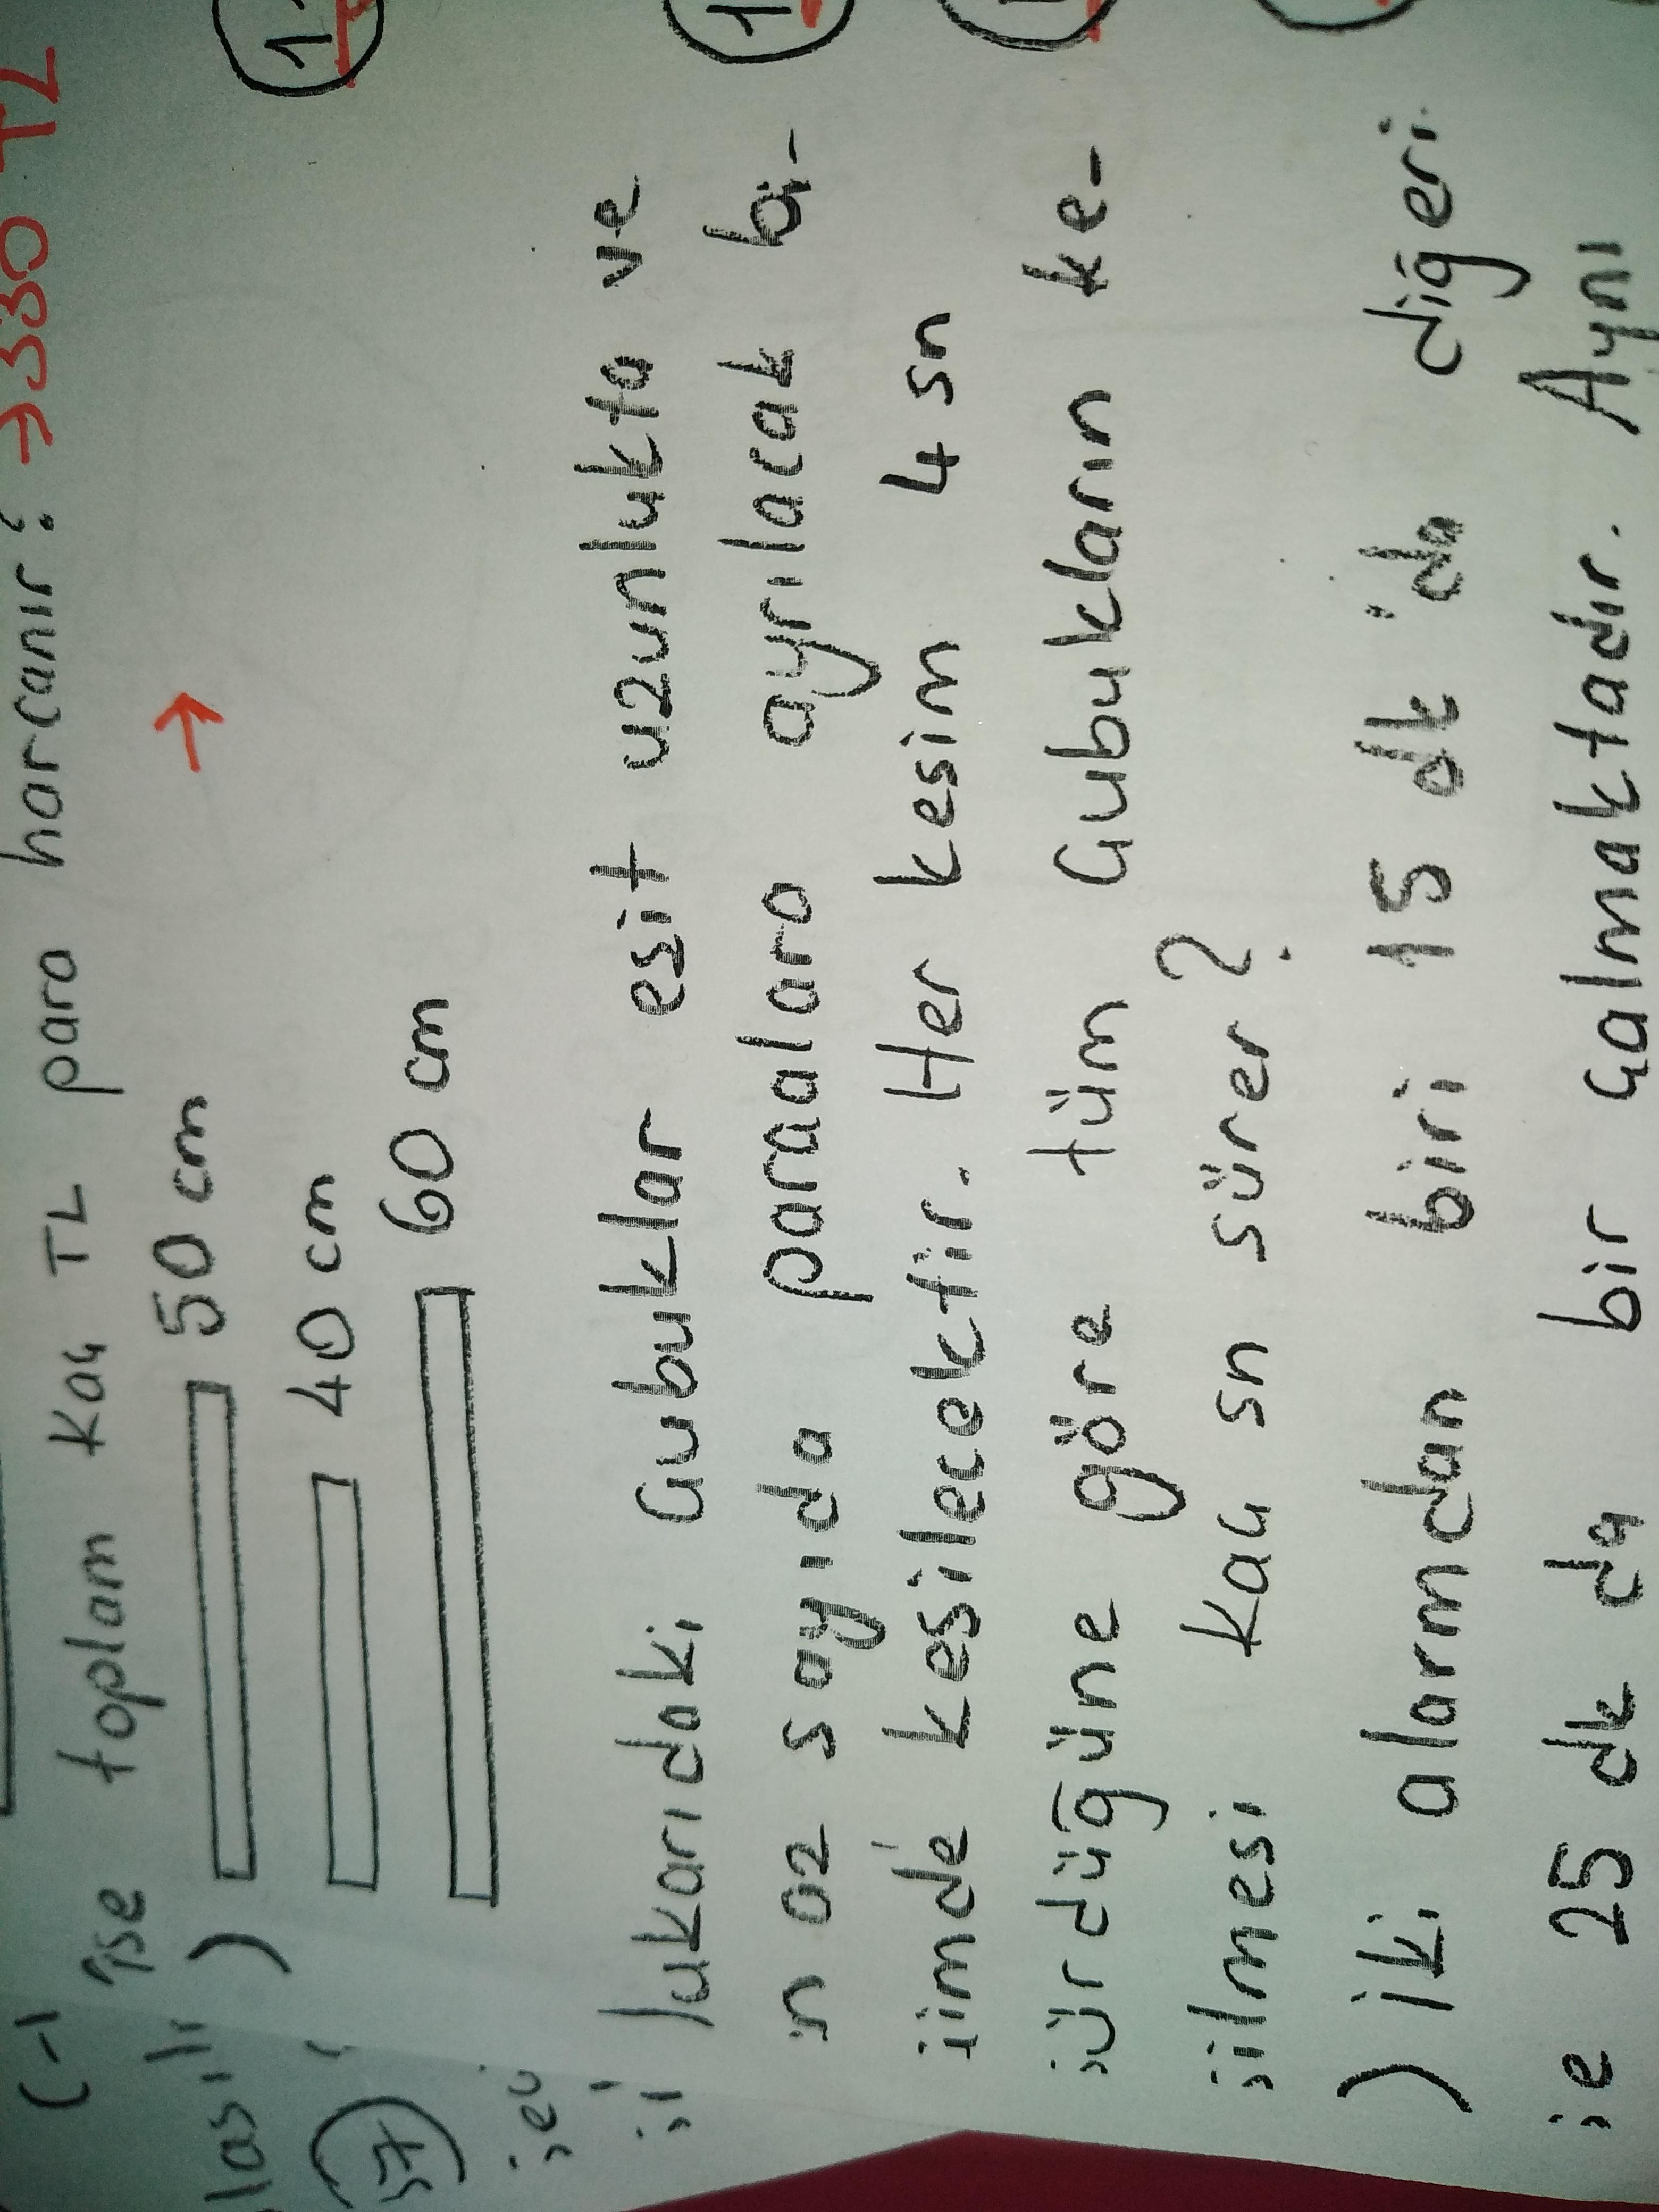 horcanır? → 330 TL
(-1 ise toplam Kaç TL para
) 50 cm
40 cm
60 cm
Yukarıdaki Çubuklar eşit uzunlukta ve
en az sayıda parçalara ayrılacak bi-
çimde kesilecektir. Her kesim 4 sn
sürdüğüne göre tüm Çubukların ke-
silmesi kaç sn sürer?
) İki alarmdan biri 15 dk'da diğeri
ise 25 dk da bir çalmaktadır. Aynı
57